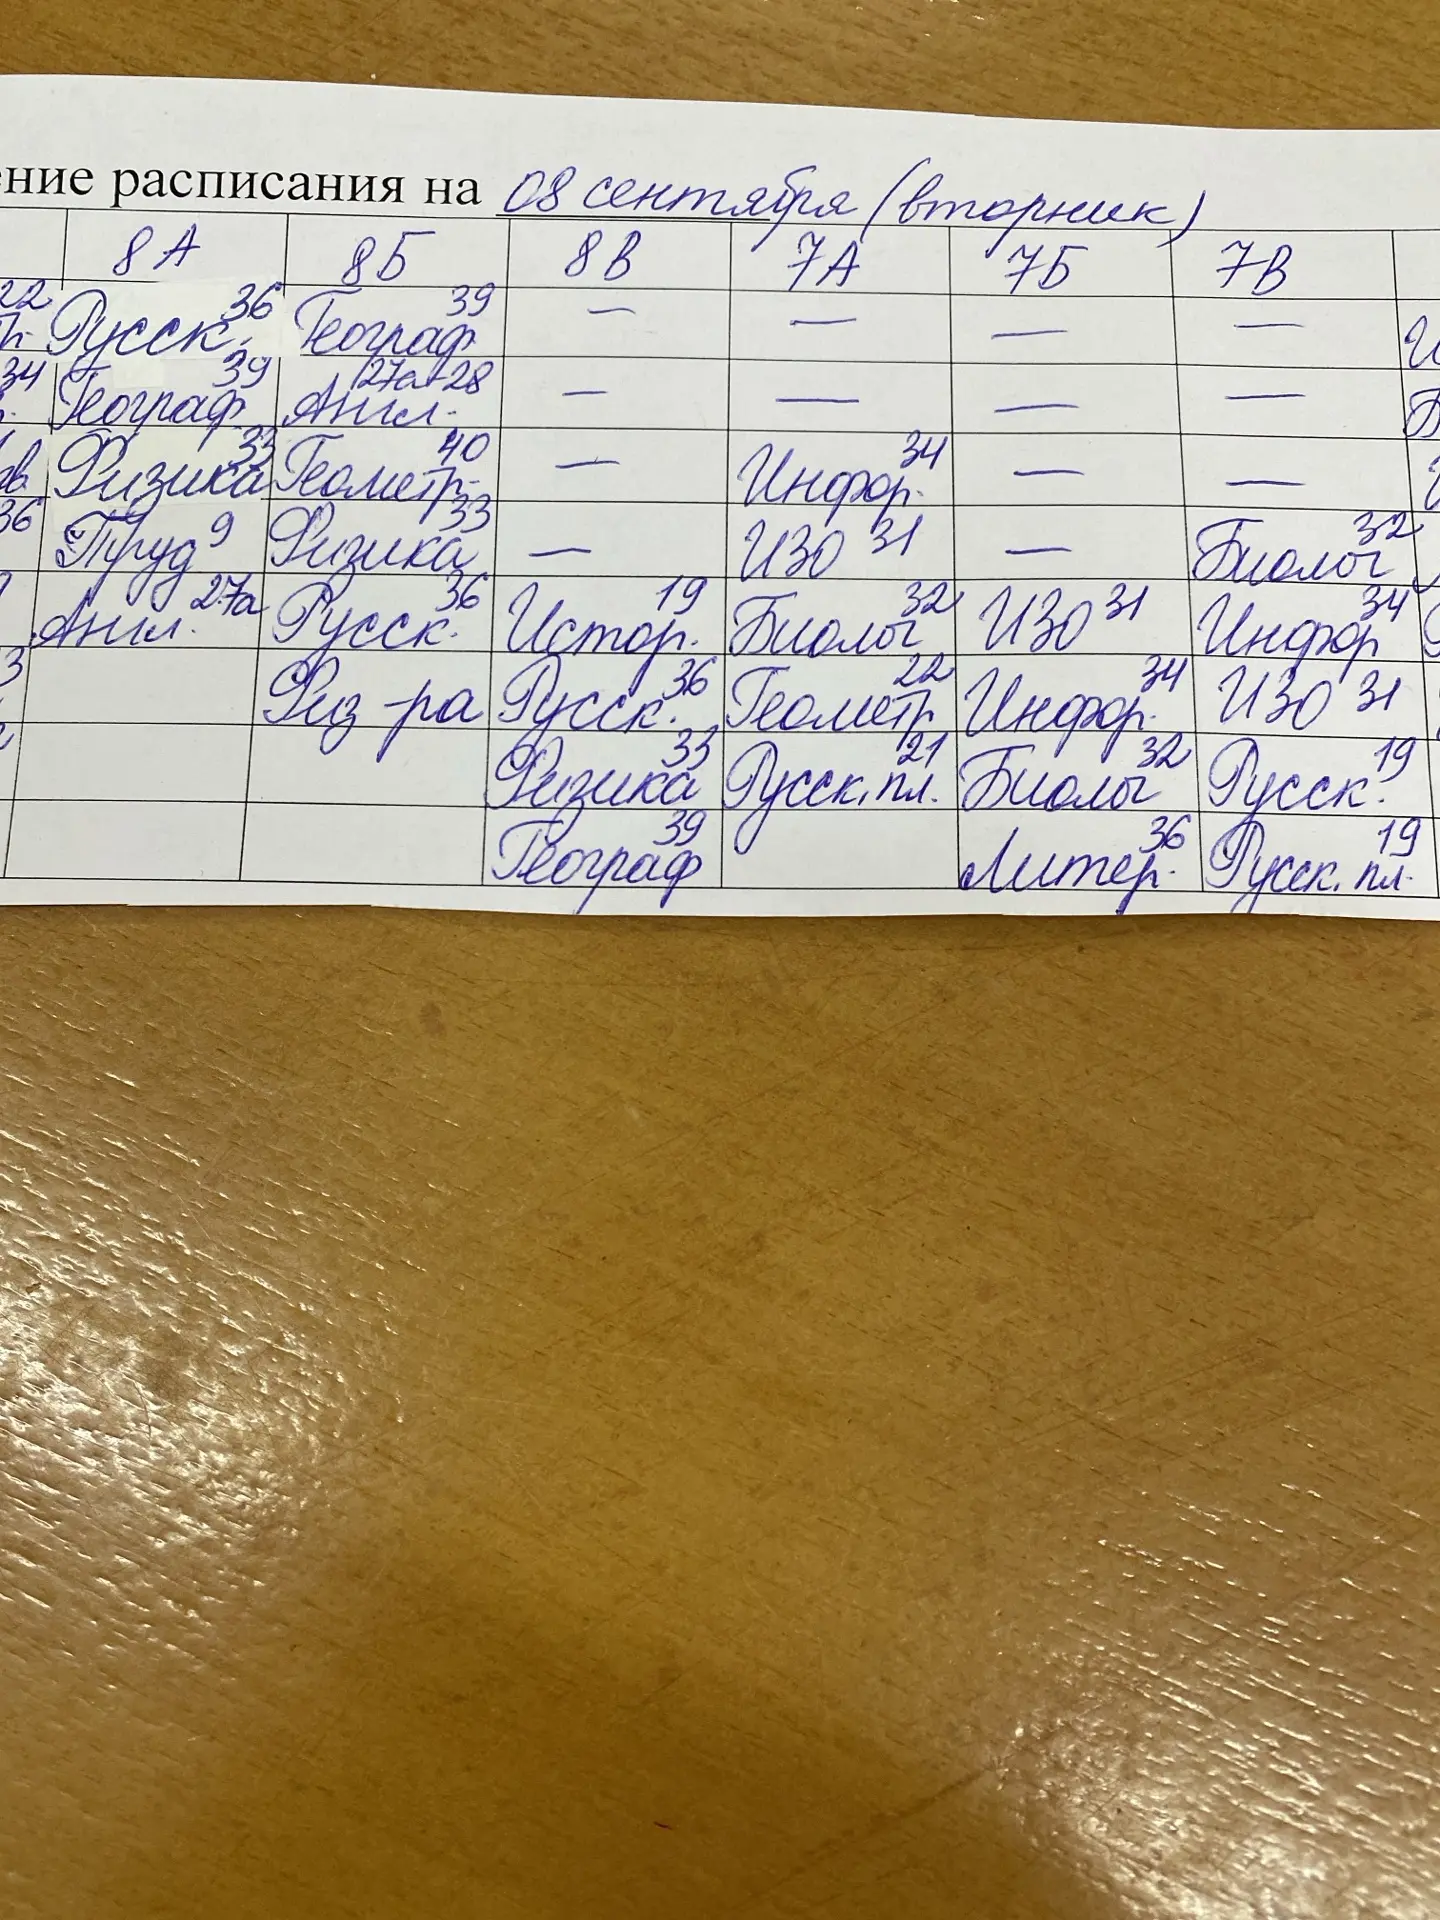 ение расписания на 08 сентября (вторник)
8А 8Б 8В 7А 7Б 7В
22 Русск. 36 Географ 39 — — — —
34 Географ 39 Англ. 27а 28 — — — —
Физика 33 Геометр. 40 — Инфор. 34 — —
36 Труд 9 Физика 33 — ИЗО 31 — Биолог 32
Англ. 27а Русск. 36 Истор. 19 Биолог 32 ИЗО 31 Инфор 34
3 Физ-ра Русск. 36 Геометр 22 Инфор. 34 ИЗО 31
Физика 33 Русск. пл. 21 Биолог 32 Русск. 19
Географ 39 Литер. 36 Русск. пл. 19